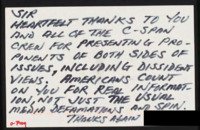 SIR
HEARTFELT THANKS TO YOU
AND ALL OF THE C-SPAN
CREW FOR PRESENTING PRO-
PONENTS OF BOTH SIDES OF
ISSUES, INCLUDING DISSIDENT
VIEWS. AMERICANS COUNT
ON YOU FOR REAL INFORMAT-
ION NOT JUST THE USUAL
MEDIA DEFAMATIONS AND SPIN.
THANKS AGAIN